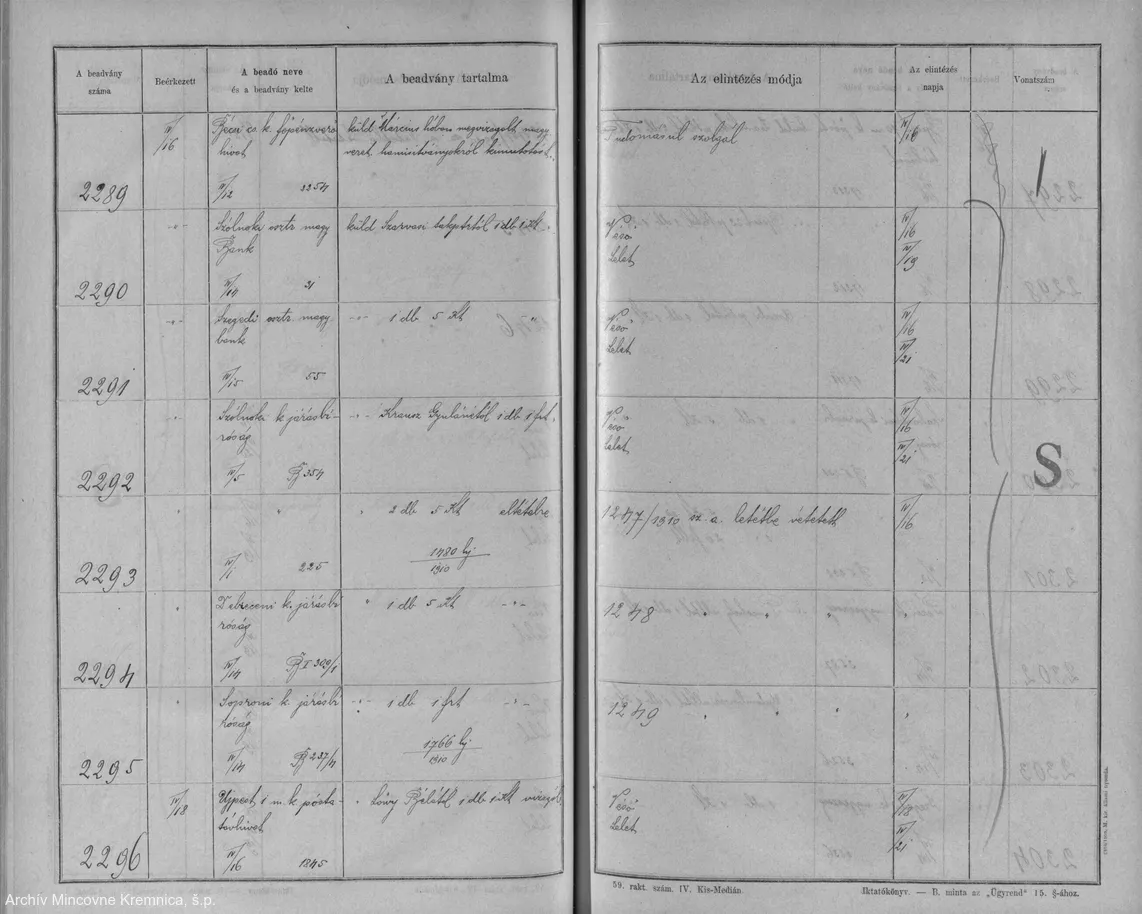 A beadvány
száma
Beérkezett
A beadó neve
és a beadvány kelte
A beadvány tartalma
Az elintézés módja
Az elintézés
napja
Vonatszám
IV/16
Bécsi cs. k. főpénzverő
hivat
küld Március hóban megvizsgált magy
veret hamisitványokról kimutatást
Tudomásul szolgál
IV/16
2289
IV/12 2254
Szolnoki osztr magy
Bank
küld Szarvasi takptrtól 1 db 1 Kt
Véső
Lelet
IV/16
IV/19
2290
IV/14 21
Szegedi osztr magy
bank
1 db 5 Kt
Véső
Lelet
IV/16
IV/21
2291
IV/15 55
Szolnoki k járásbi-
róság
Krausz Gyulánétól 1 db 1 frt.
Véső
Lelet
IV/16
IV/21
2292
IV/5 B 354
2 db 5 Kt eltételre
1247/1910 sz. a. letétbe vétetett
IV/16
1480 bj
1910
2293
IV/1 225
Debreceni k. járásbi
róság
1 db 5 Kt
1248
2294
IV/14
Soproni k. járásbi
róság
1 db 1 frt
1249
1766 bj
1910
2295
IV/14 B 237/4
S
IV/18
Ujpest 1 m. k. pósta-
távhivat
Lőwy Bélától 1 db 1 Kt vizsgál.
Véső
Lelet
IV/18
IV/21
2296
IV/16 1845
59. rakt. szám. IV. Kis-Medián.
Iktatókönyv. — B. minta az „Ügyrend" 15. §-ához.
Archív Mincovne Kremnica, š.p.